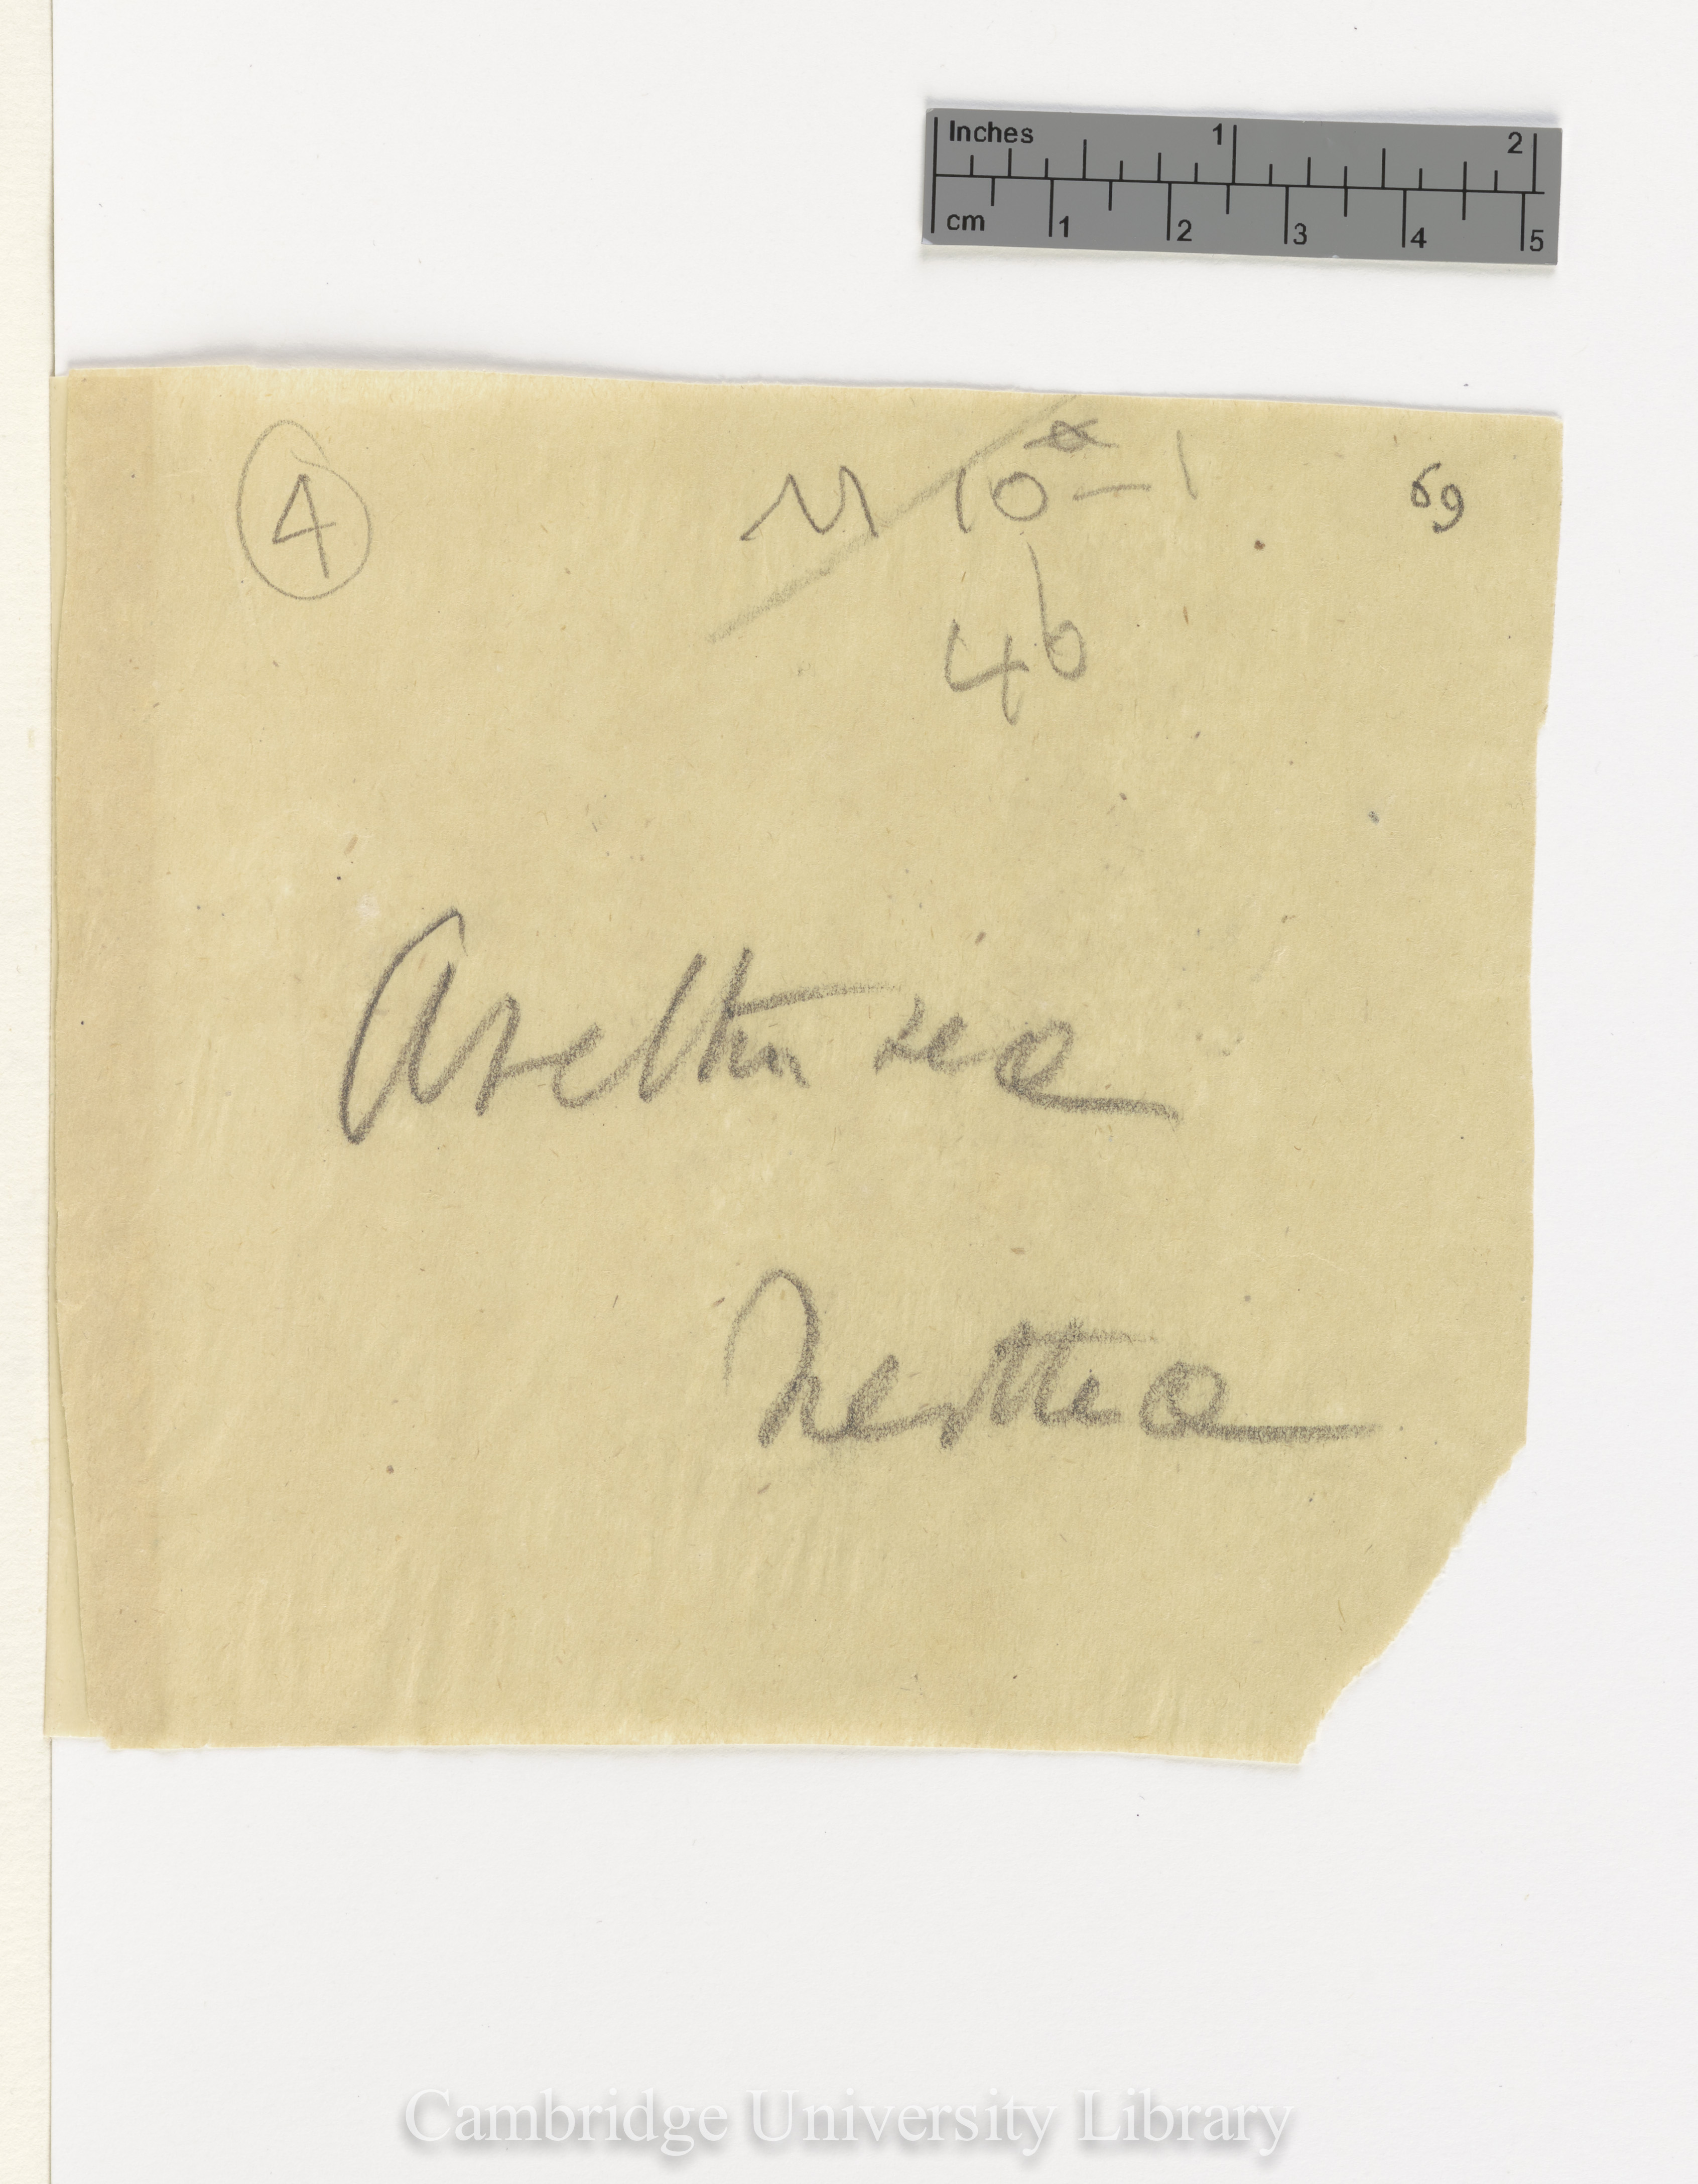 Inches 1 2
cm 1 2 3 4 5
4 M 10 — 1 69
46
Arethusea
Neottea
Cambridge University Library